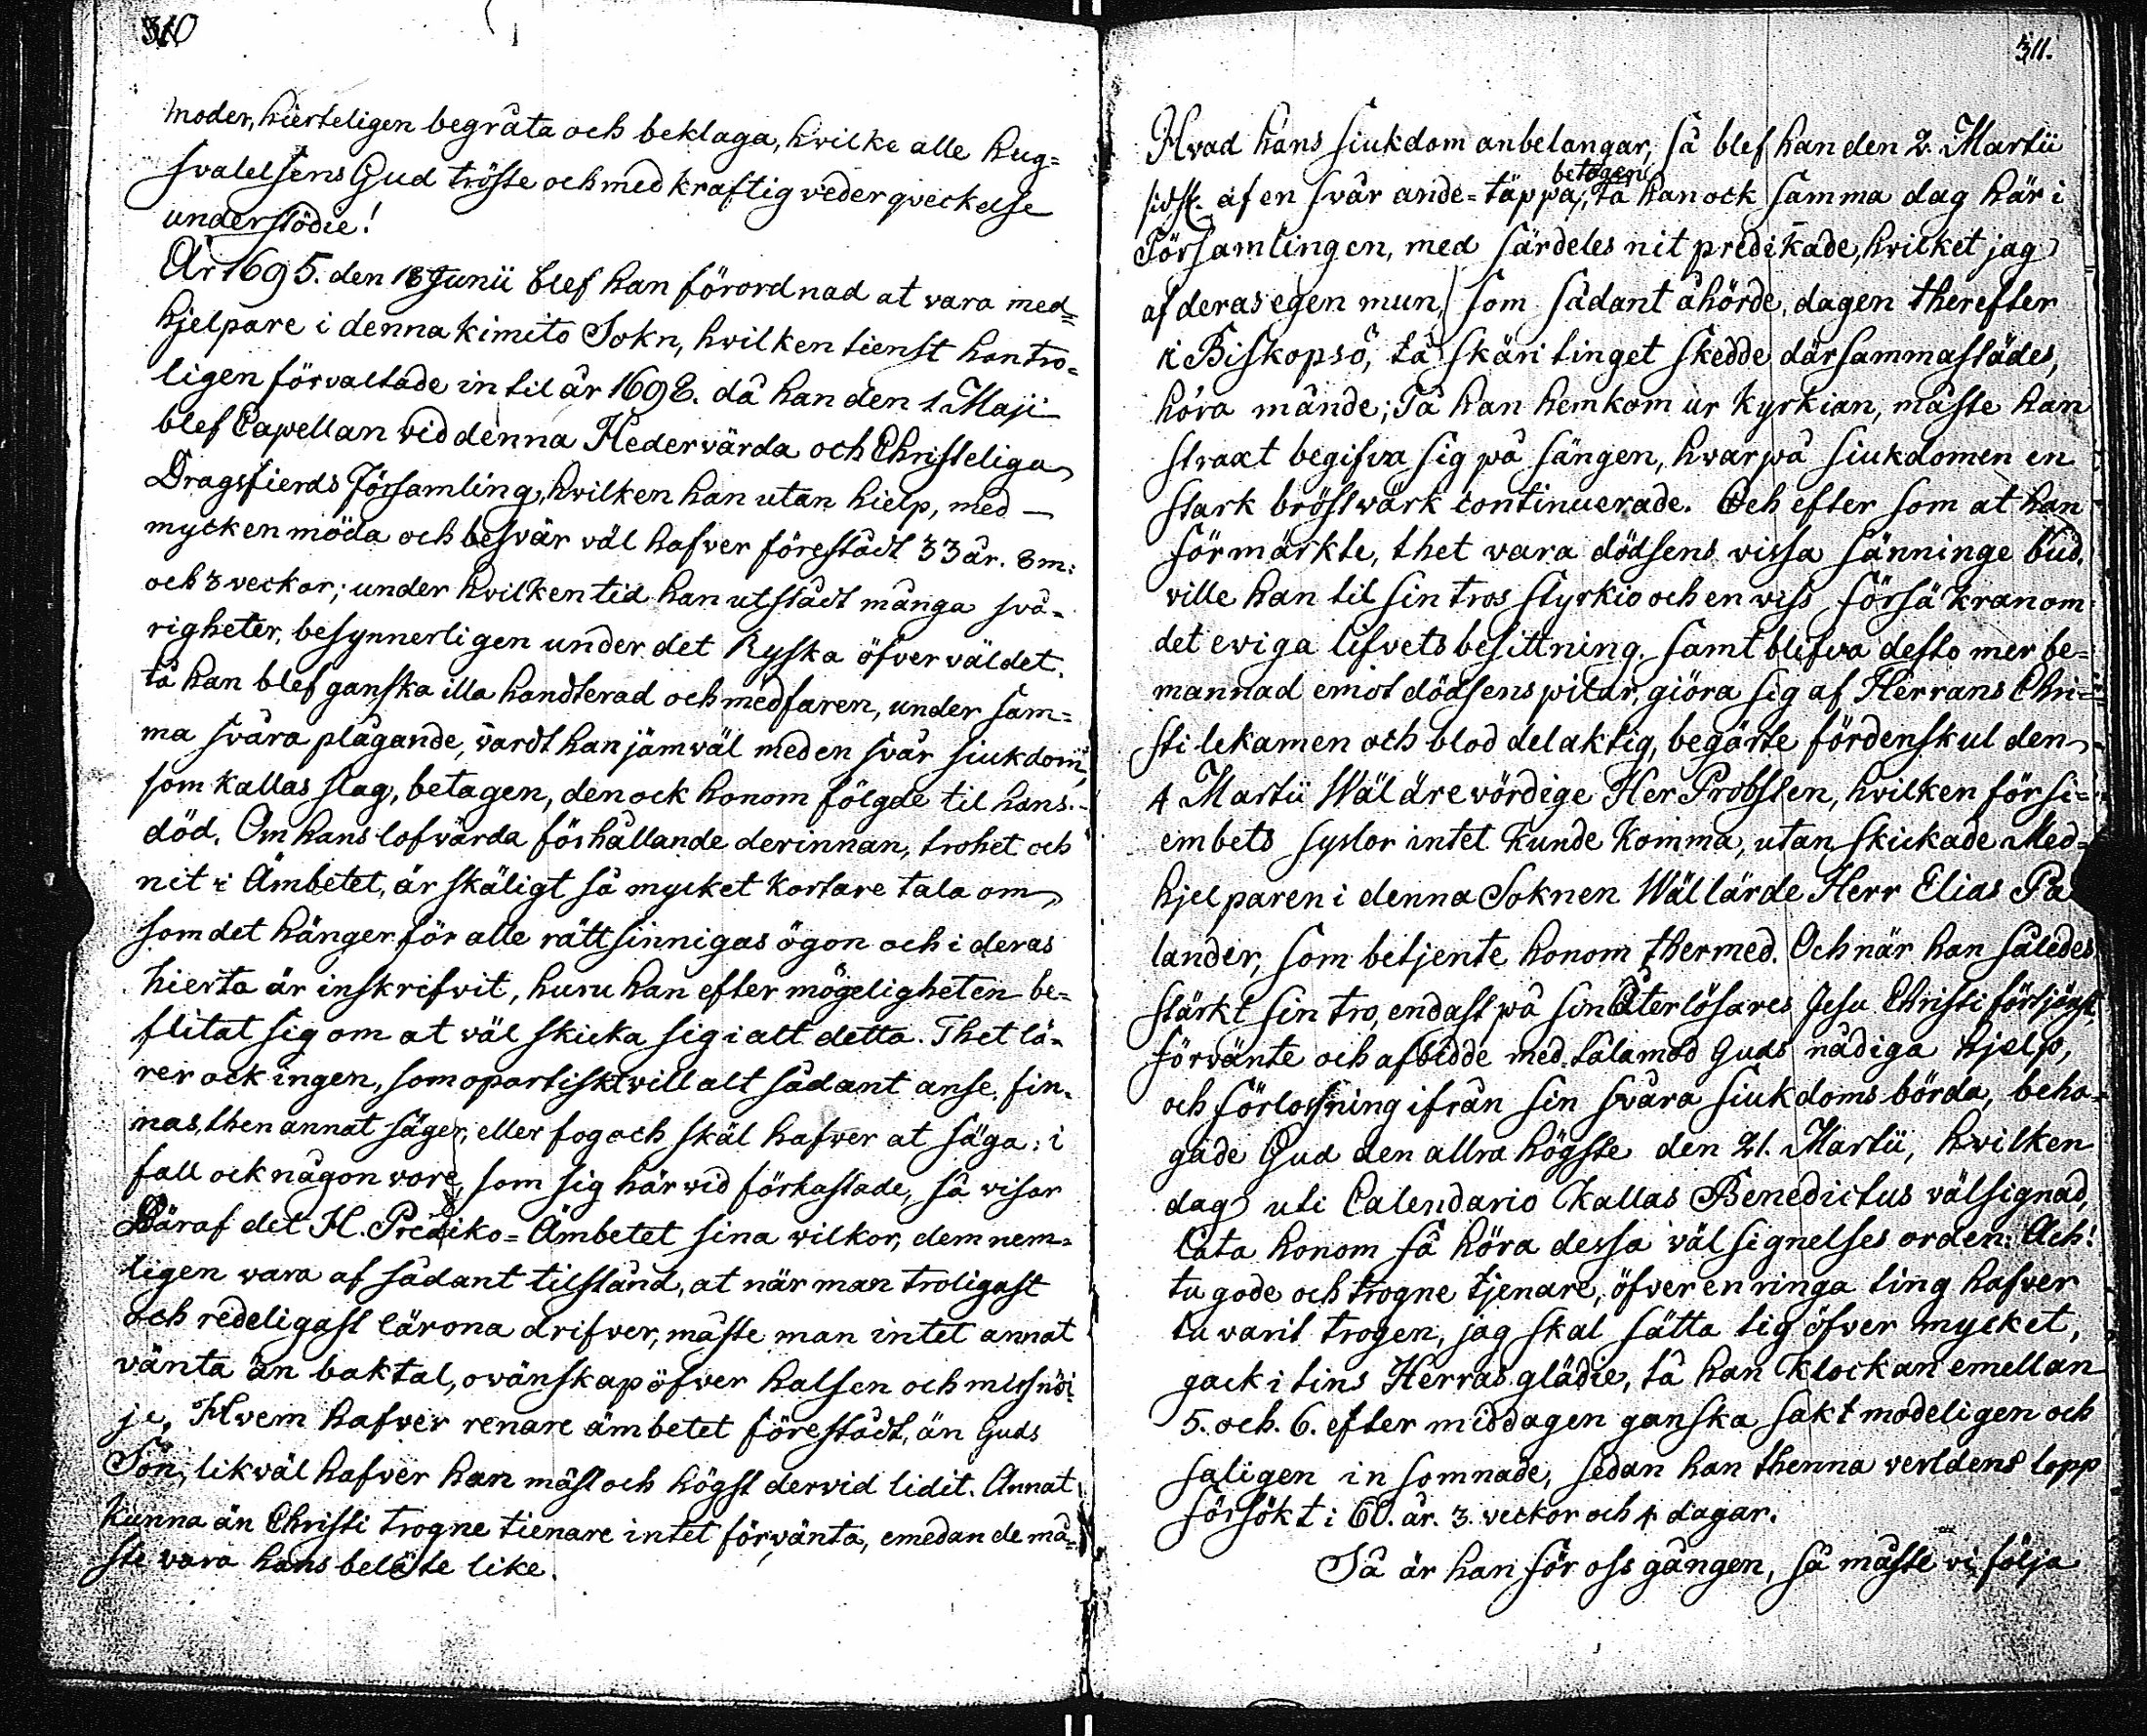 310
moder, hierteligen begråta och beklaga, hvilke alle hug=
svalelsens Gud tröste och med kraftig vederqveckelse
understödie!
År 1695. den 18 Junii blef han förordnad at vara med=
hjelpare i denna Kimito Sokn, hvilken tienst han tro=
ligen förvaltade intil år 1698. då han den 1. Maji
blef Capellan vid denna Hedervärda och Christeliga
Dragsfierds församling, hvilken han utan hielp, med
mycken möda och besvär väl hafver förestådt 33 år. 8 m:
och 3 veckor; under hvilken tid han utstådt många svå=
righeter, besynnerligen under det Ryska öfverväldet,
tå han blef ganska illa handterad och medfaren, under sam=
ma svåra plågande, vardt han jämväl med en svår siukdom,
som kallas slag, betagen, den ock honom fölgde til hans
död. Om hans lofvärda förhållande derinnan, trohet och
nit i Ämbetet, är skäligt så mycket kortare tala om
som det hänger för alle rättsinnigas ögon och i deras
hierta är inskrifvit, huru han efter mögeligheten be=
flitat sig om at väl skicka sig i alt detta. Thet lä=
rer ock ingen, som opartiskt vill alt sådant anse, fin=
nas, then annat säger, eller fog och skäl hafver at säga: i
fall ock någon vore, som sig härvid förkastade, så visar
Däraf det H. Prediko=Ämbetet sina vilkor, dem nem=
ligen vara af sådant tilstånd, at när man troligast
och redeligast lärona drifver, måste man intet annat
vänta än baktal, ovänskap öfver halsen och missnöi
je, Hvem hafver renare ämbetet förestådt, än Guds
Son, likväl hafver han mäst och högst dervid lidit. Annat
kunna än Christi trogne tienare intet förvänta, emedan de må=
ste vara hans beläte like.
311.
Hvad hans siukdom anbelangar, så blef han den 2. Martii
betagen
sidst. af en svår ande=täppa, tå han ock samma dag här i
Församlingen, med särdeles nit predikade, hvilket jag
af deras egen mun, som sådant åhörde, dagen therefter
i Biskopsö, tå skäri tinget skedde därsammastädes,
höra månde; Tå han hemkom ur kyrkian, måste han
straxt begifva sig på sängen, hvarpå siukdomen en
stark bröstwärk continuerade. Och efter som at han
förmärkte, thet vara dödsens vissa sänninge bud,
ville han til sin tros styrkio och en wiss försäkran om
det eviga lifvets besittning, samt blifva desto mer be=
mannad emot dödsens pilar, giöra sig af Herrans Chri=
sti lekamen och blod delaktig, begärte fördenskul den
4 Martii Wäl ärevördige Her Probsten, hvilken för si=
embets syslor intet kunde komma, utan skickade Med=
hjelparen i denna Soknen Wällärde Herr Elias Pa
lander, som betjente honom thermed. Och när han således
stärkt sin tro, endast på sin Återlösares Jesu Christi förtjänst,
förvänte och afbidde med tålamod Guds nådiga hjelp,
och förlossning ifrån sin svåra siukdoms börda, beha=
gade Gud den allra högste den 21. Martii, hvilken
dag uti Calendario kallas Benedictus välsignad,
låta honom få höra dessa välsignelses orden: Ach!
tu gode och trogne tjenare, öfver en ringa ting hafver
tu varit trogen, jag skal sätta tig öfver mycket,
gack i tins Herras glädie, tå han klockan emellan
5. och. 6. efter middagen ganska saktmodeligen och
saligen insomnade, sedan han thenna verldens lopp
försökt i 60. år. 3. veckor och 4 dagar.
Så är han för oss gången, så måste vi följa